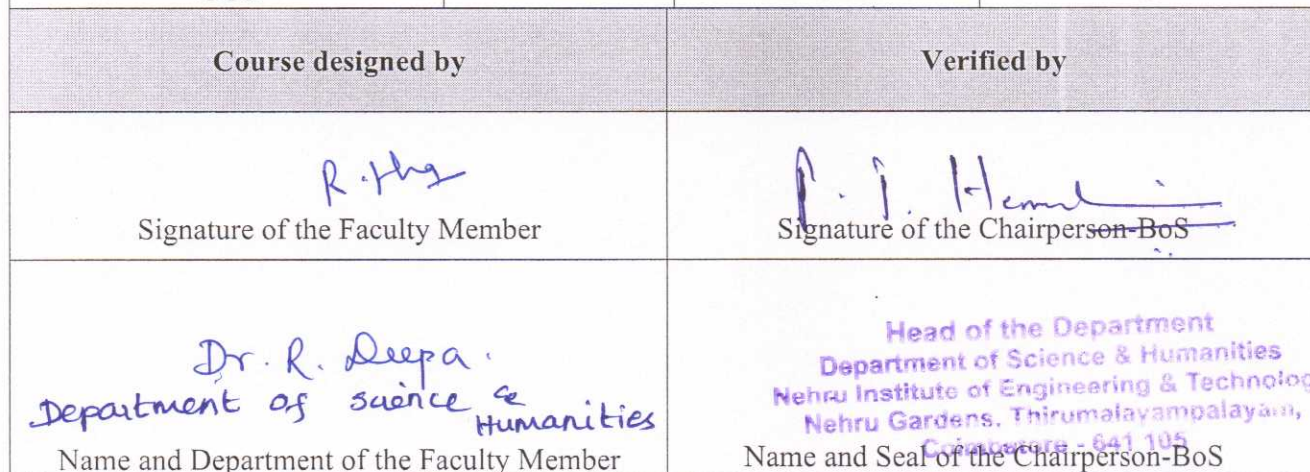 Course designed by
Verified by
Signature of the Faculty Member
Signature of the Chairperson-BoS
Dr. R. Deepa.
Department of science &
Humanities
Name and Department of the Faculty Member
Head of the Department
Department of Science & Humanities
Nehru Institute of Engineering & Technolog
Nehru Gardens, Thirumalayampalayam,
Coimbatore - 641 105
Name and Seal of the Chairperson-BoS